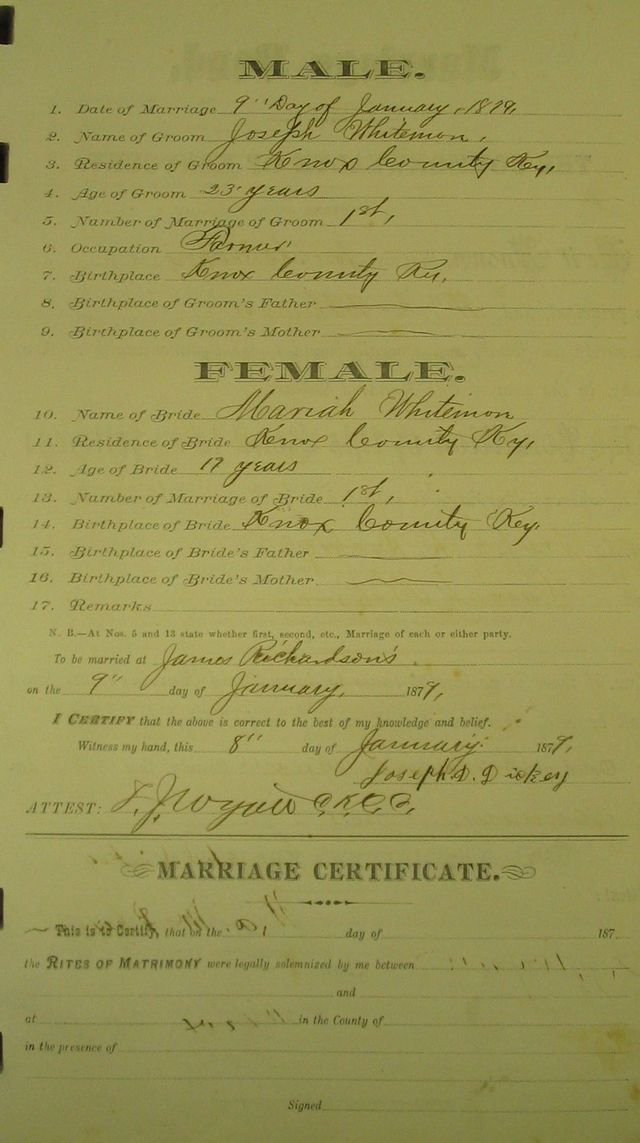 MALE.
1. Date of Marriage 9" Day of January, 1879,
2. Name of Groom Joseph Whitemon,
3. Residence of Groom Knox County Ky,
4. Age of Groom 23 years
5. Number of Marriage of Groom 1st,
6. Occupation Farmer
7. Birthplace Knox County Ky,
8. Birthplace of Groom's Father
9. Birthplace of Groom's Mother
FEMALE.
10. Name of Bride Mariah Whitemon
11. Residence of Bride Knox County Ky,
12. Age of Bride 17 years
13. Number of Marriage of Bride 1st,
14. Birthplace of Bride Knox County Ky.
15. Birthplace of Bride's Father
16. Birthplace of Bride's Mother
17. Remarks
N. B.—At Nos. 5 and 13 state whether first, second, etc., Marriage of each or either party.
To be married at James Richardson's
on the 9" day of January, 1879,
I CERTIFY that the above is correct to the best of my knowledge and belief.
Witness my hand, this 8" day of January 1879,
Joseph D. Dickey
ATTEST:
MARRIAGE CERTIFICATE.
This is to Certify, that on the day of 187
the RITES OF MATRIMONY were legally solemnized by me between
and
at in the County of
in the presence of
Signed